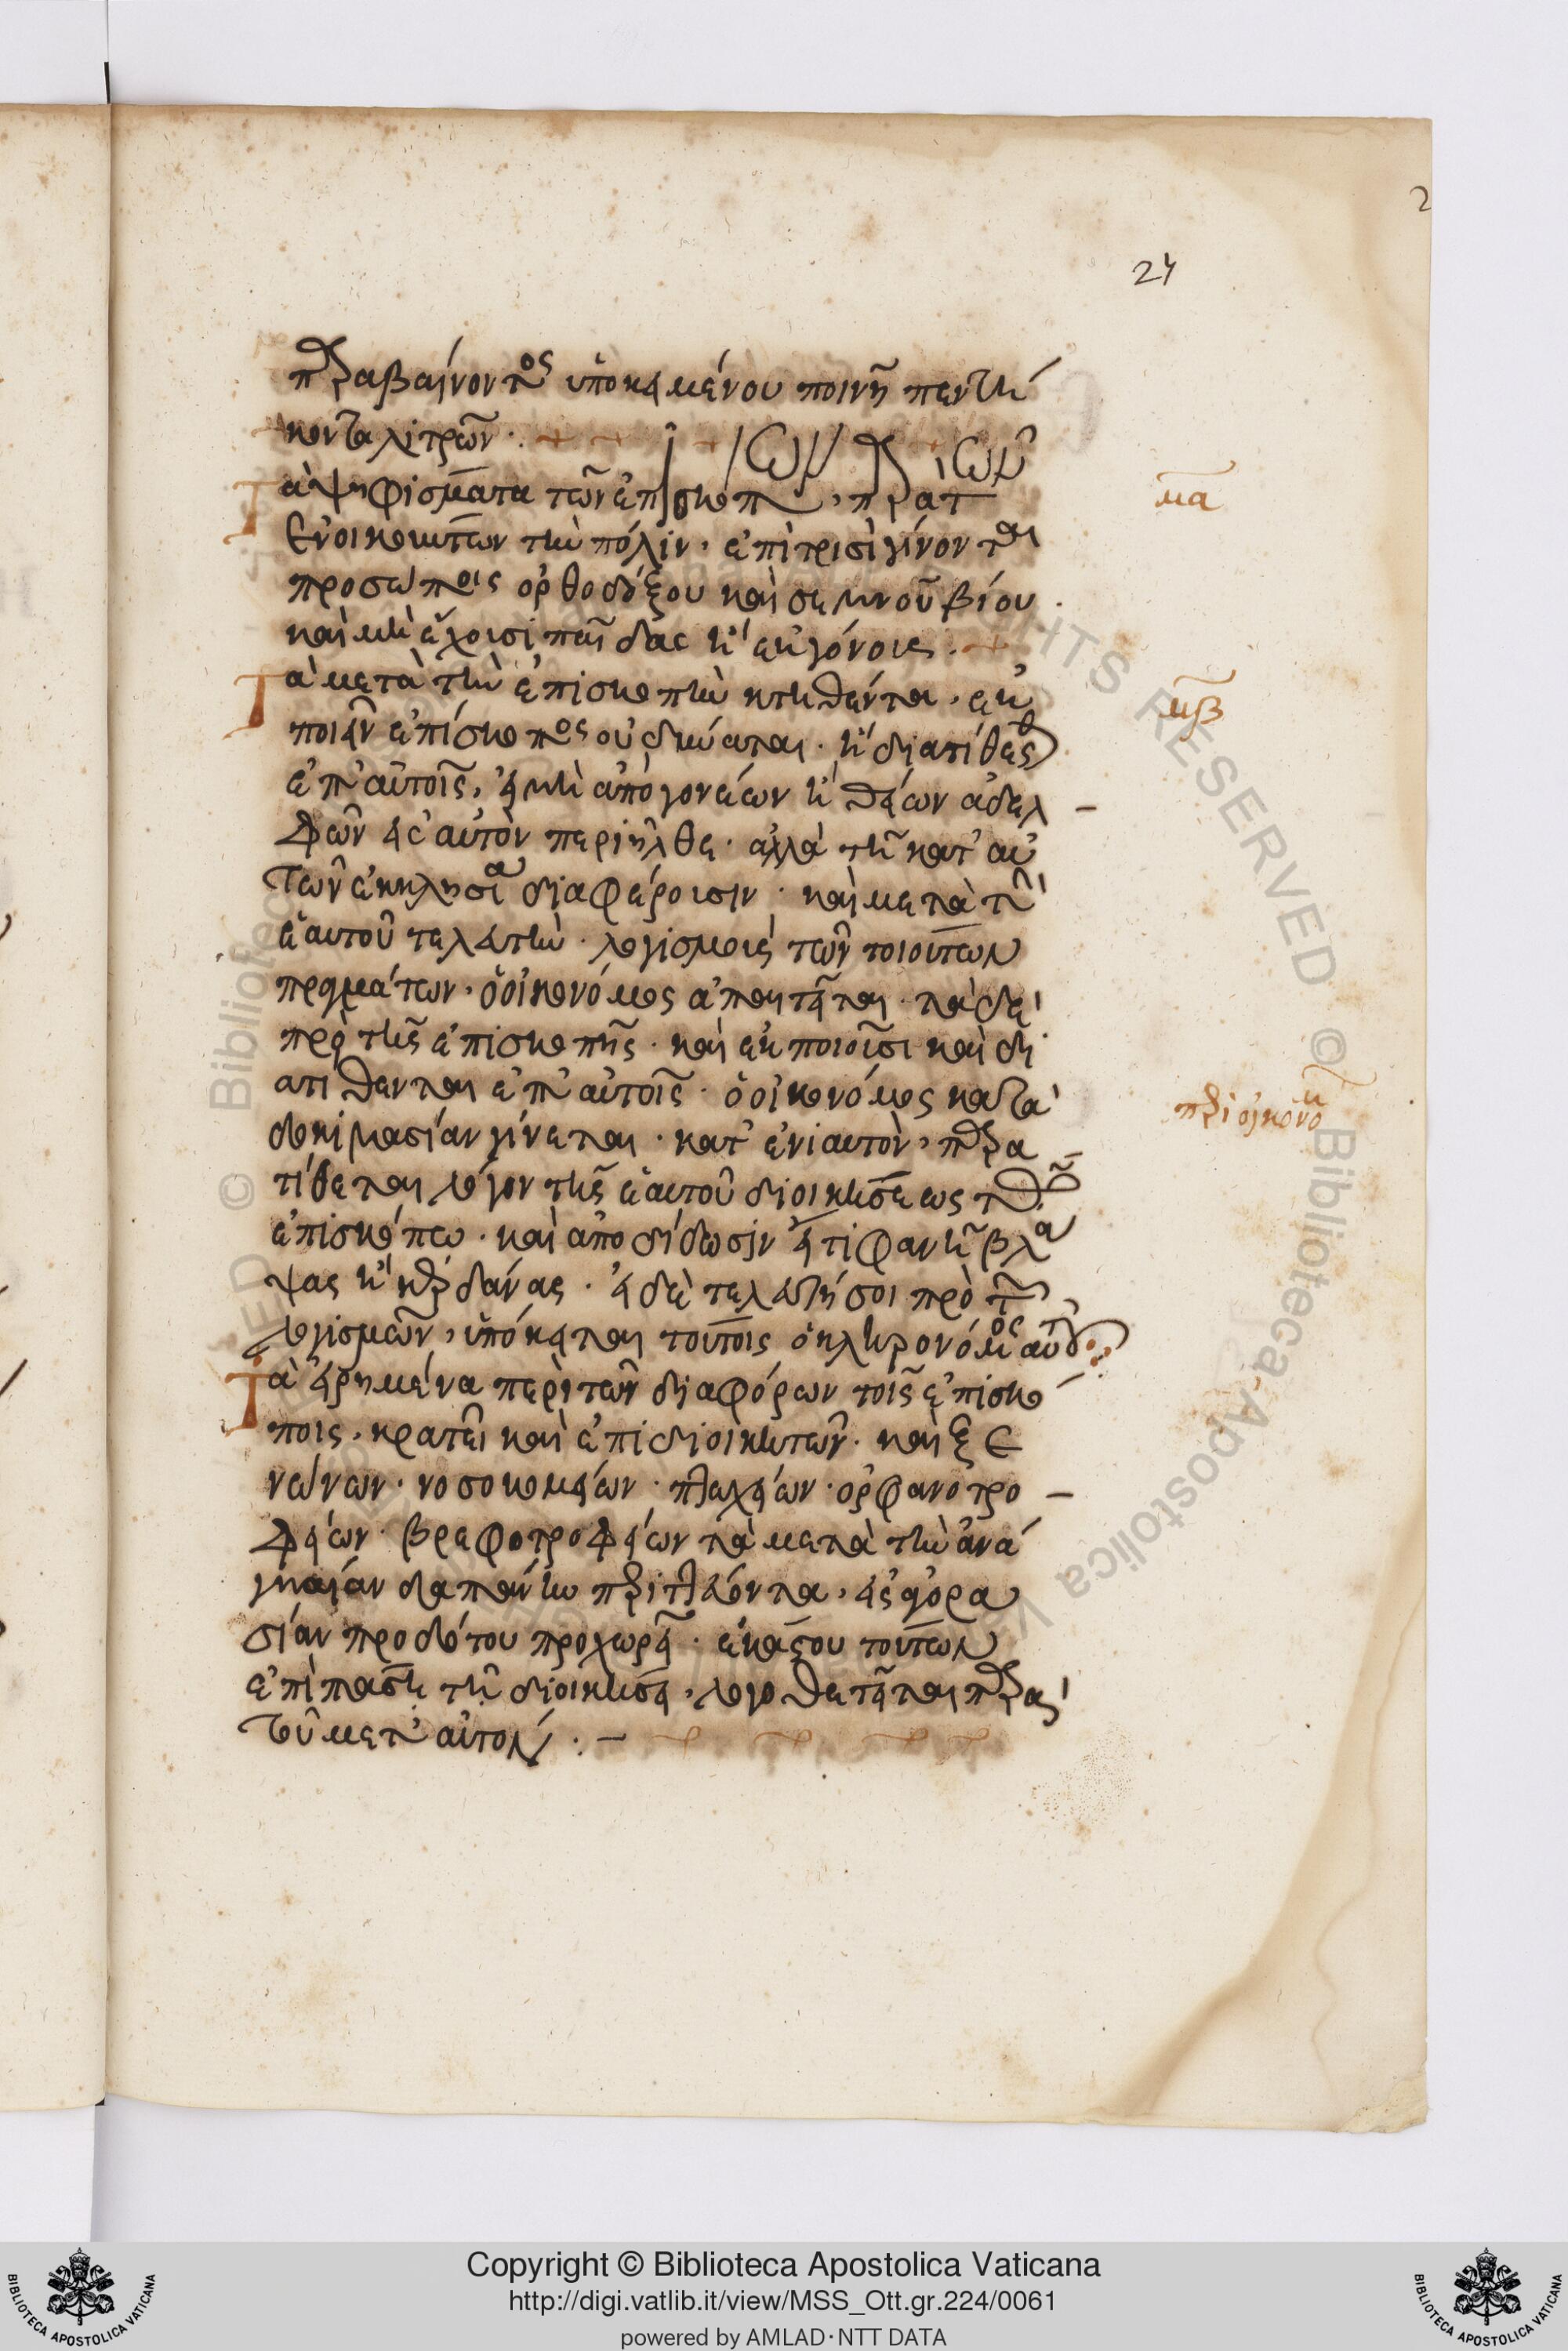 2
24
παραβαίνοντος ὑποκειμένου ποινῆ πεντή
κοντα λιτρῶν·
Τὰ ψηφίσματα τῶν ἐπισκόπων, παρὰ τῶν
ἐνοικούντων τὴν πόλιν, ἐπὶ τρισὶ γίνονται
προσώποις ὀρθοδόξου καὶ σεμνοῦ βίου·
καὶ μὴ ἔχουσι παῖδας ἢ ἐκγόνους·
Τὰ μετὰ τὴν ἐπισκοπὴν κτηθέντα, ἐκ
ποιεῖν ἐπίσκοπος οὐ δύναται· ἢ διατίθεσθαι
ἐπ' αὐτοῖς, εἰ μὴ ἀπὸ γονέων ἢ θείων ἀδελ
φῶν εἰς αὐτὸν περιῆλθε· ἀλλὰ τῆ κατ' αὐ
τῶν ἐκκλησία διαφέρουσιν· καὶ μετὰ τὴν
ἑαυτοῦ τελευτὴν· λογισμοὺς τῶν τοιούτων
πραγμάτων, ὁ οἰκονόμος ἀπαιτεῖται· τὰ δὲ
πρὸ τῆς ἐπισκοπῆς· καὶ ἐκποιοῦσι καὶ δι
ατίθενται ἐπ' αὐτοῖς· ὁ οἰκονόμος κατὰ
δοκιμασίαν γίνεται· κατ' ἐνιαυτὸν, παρα
τίθεται λόγον τῆς ἑαυτοῦ διοικήσεως τῶ
ἐπισκόπω· καὶ ἀποδίδωσιν εἴ τι φανῆ βλά
ψας ἢ κερδάνας· εἰ δὲ τελευτήσοι πρὸ τῶν
λογισμῶν, ὑπόκειται τούτοις ὁ κληρονόμος αὐτοῦ
Τὰ εἰρημένα περὶ τῶν διαφόρων τοῖς ἐπισκό
ποις, κρατεῖ καὶ ἐπὶ διοικητῶν· καὶ ξε
νώνων· νοσοκομείων· πτωχείων· ὀρφανοτρο
φείων· βρεφοτροφείων τὰ μετὰ τὴν ἀνα
γκαίαν δαπάνην περιττεύοντα, εἰς ἀγορα
σίαν προσόδου προχωρεῖ· ἑκάστου τούτων
ἐπὶ πάση τῆ διοικήσει, λογοθετεῖται παρὰ
τοῦ μετ' αὐτόν·
μα
μβ
περὶ οἰκονόμου
Copyright © Biblioteca Apostolica Vaticana
http://digi.vatlib.it/view/MSS_Ott.gr.224/0061
powered by AMLAD·NTT DATA